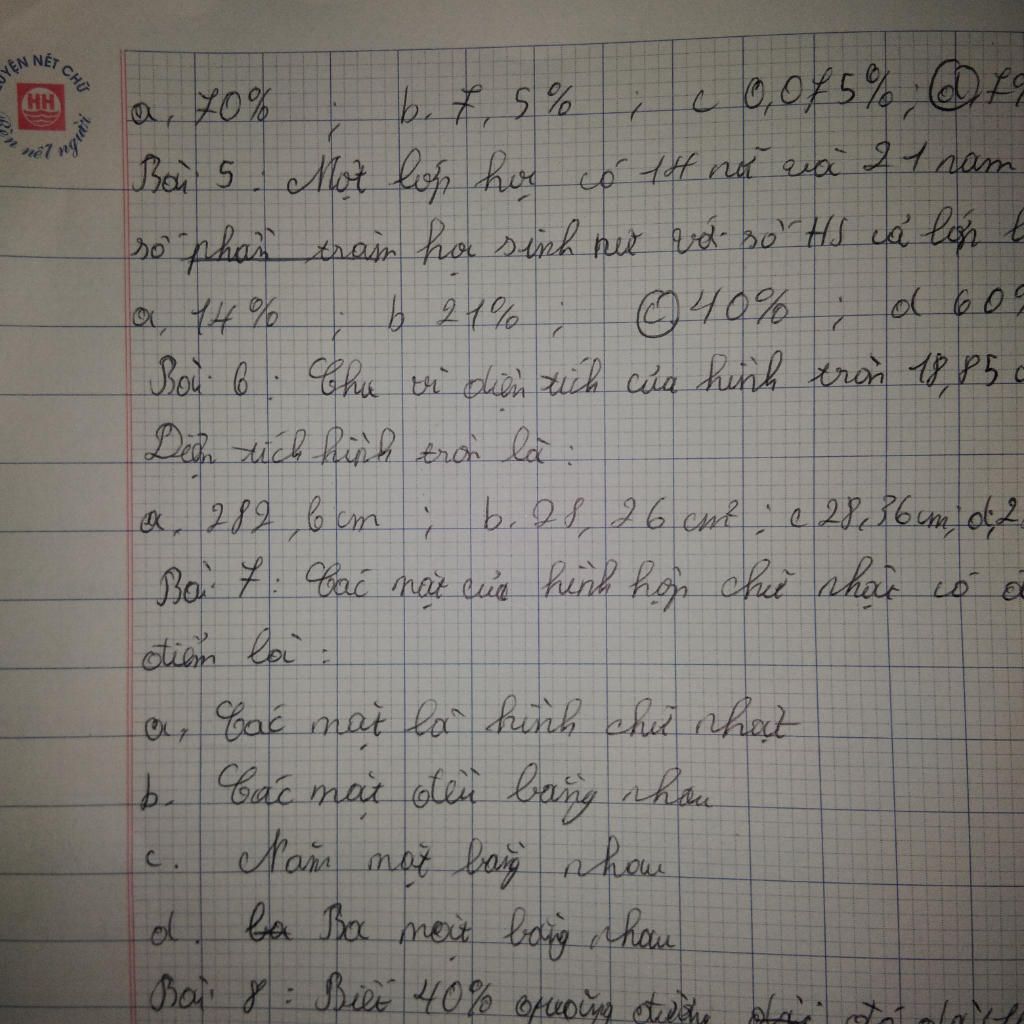 LUYỆN NÉT CHỮ
HH
Rèn nết người
a, 70% ; b. 7,5% ; c 0,075% ; d, 7
Bài 5 : Một lớp học có 14 nữ và 21 nam
số phần trăm học sinh nữ với số HS cả lớp
a, 14% ; b 21% ; c 40% ; d 60%
Bài 6 : Chu vi diện tích của hình tròn 18,85
Diện tích hình tròn là :
a, 282,6 cm ; b. 28,26 cm² ; c 28,36 cm; d, 2
Bài 7 : Các mặt của hình hộp chữ nhật có
điểm là :
a, Các mặt là hình chữ nhật
b. Các mặt đều bằng nhau
c. Năm mặt bằng nhau
d. Ba mặt bằng nhau
Bài 8 : Biết 40% quãng đường dài